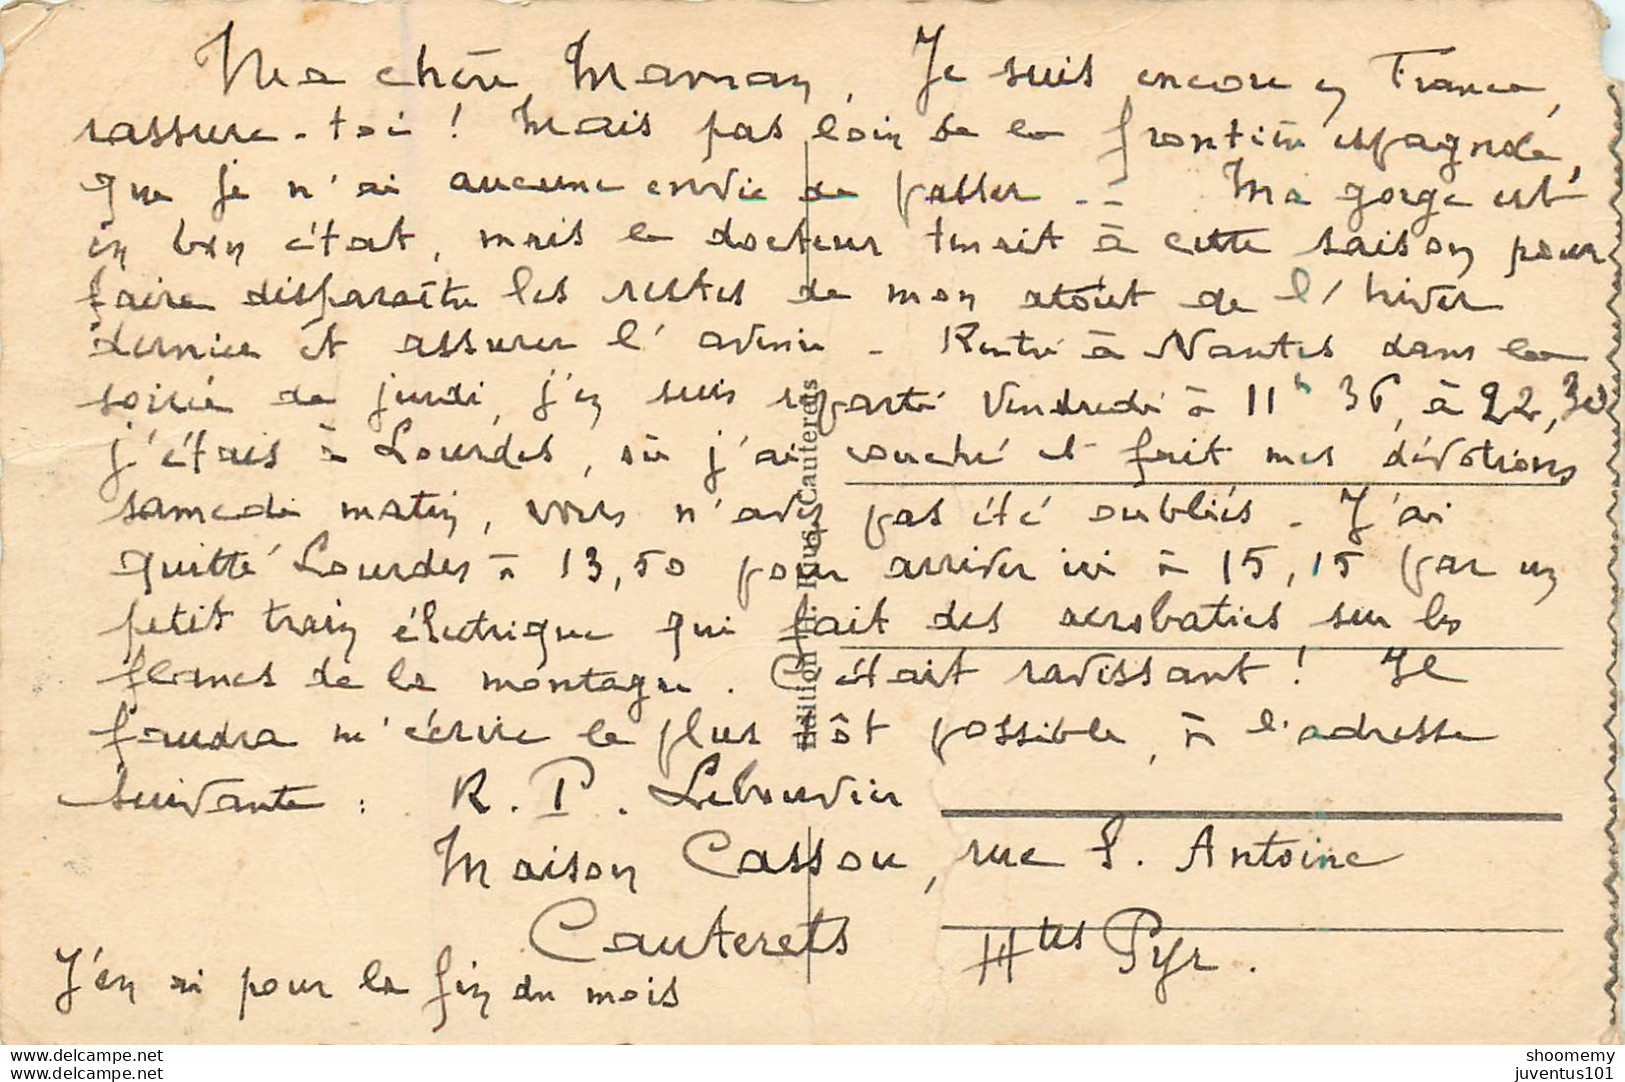 Ma chère Maman, Je suis encore en France,
rassure-toi ! Mais pas loin de la frontière espagnole,
que je n'ai aucune envie de passer... Ma gorge est
en bon état, mais le docteur tenait à cette saison pour
faire disparaître les restes de mon atout de l'hiver
dernier et assurer l'avenir - Rentré à Nantes dans la
soirée de jeudi, j'en suis reparti Vendredi à 11h 36, à 22,30
j'étais à Lourdes, où j'ai couché et fait mes dévotions
samedi matin, vous n'avez pas été oubliés - J'ai
quitté Lourdes à 13,50 pour arriver ici à 15,15 par un
petit train électrique qui fait des acrobaties sur les
flancs de la montagne. C'était ravissant ! Il
faudra m'écrire le plus tôt possible, à l'adresse
suivante : R. P. Lebouvier
Maison Cassou, rue S. Antoine
Cauterets Htes Pyr.
J'en ai pour la fin du mois
Cauterets
delcampe.net shoomemy
delcampe.net juventus101